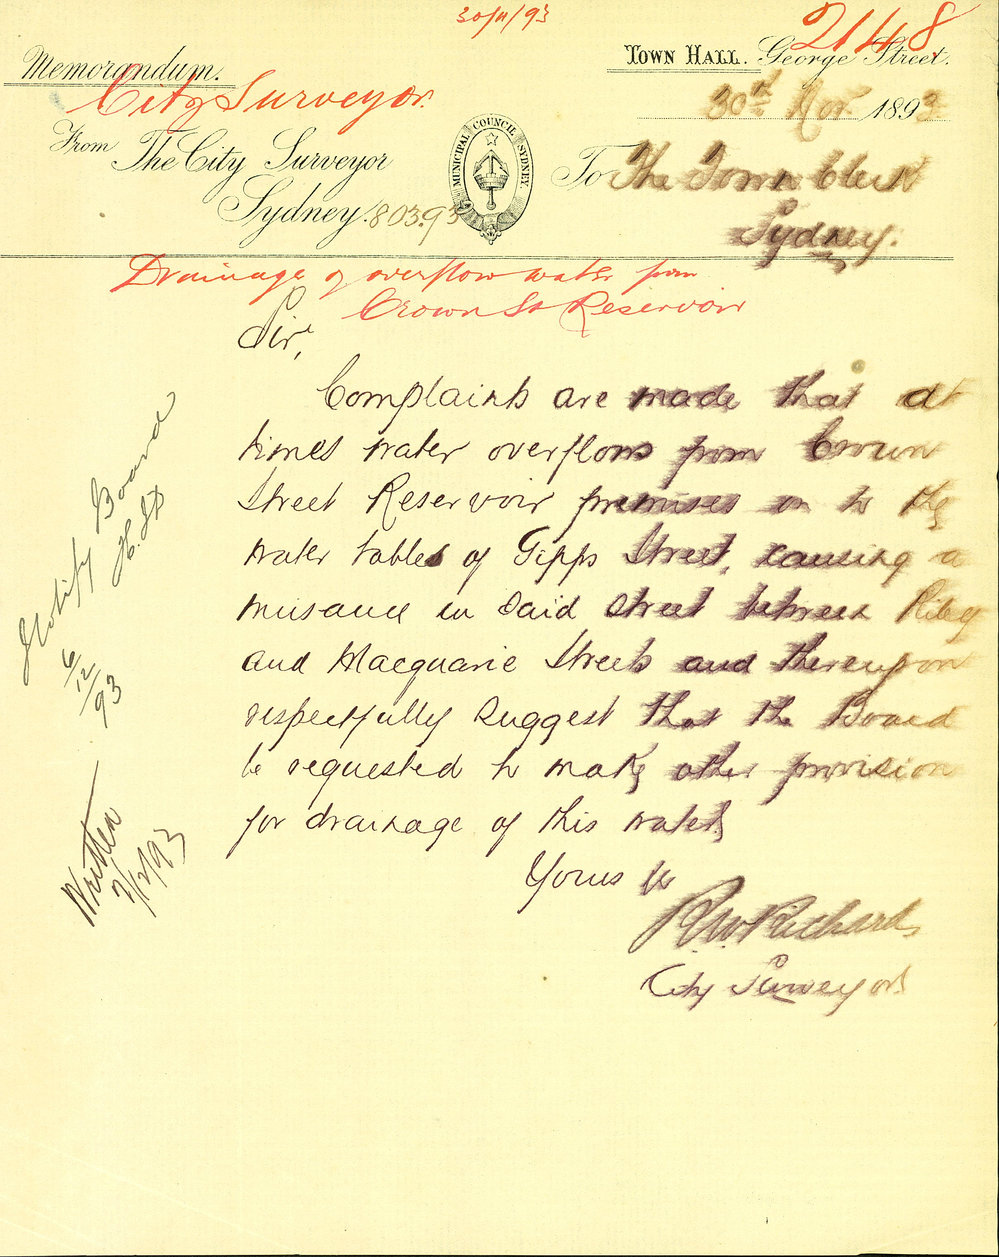 30/11/93
2148
Memorandum.
Town Hall. George Street.
City Surveyor.
30th Nov. 1893.
From The City Surveyor
Sydney. 803.93
MUNICIPAL COUNCIL SYDNEY.
To The Town Clerk
Sydney.
Drainage of overflow water from
Crown St Reservoir
Sir,
Complaints are made that at
times water overflows from Crown
Street Reservoir premises on to the
water tables of Gipps Street, causing a
nuisance in said street between Riley
and Macquarie Streets and thereupon
respectfully suggest that the Board
be requested to make other provision
for drainage of this water.
Yours &c
R W Richards
City Surveyor
Notify Board
6/12/93
Written
7/12/93